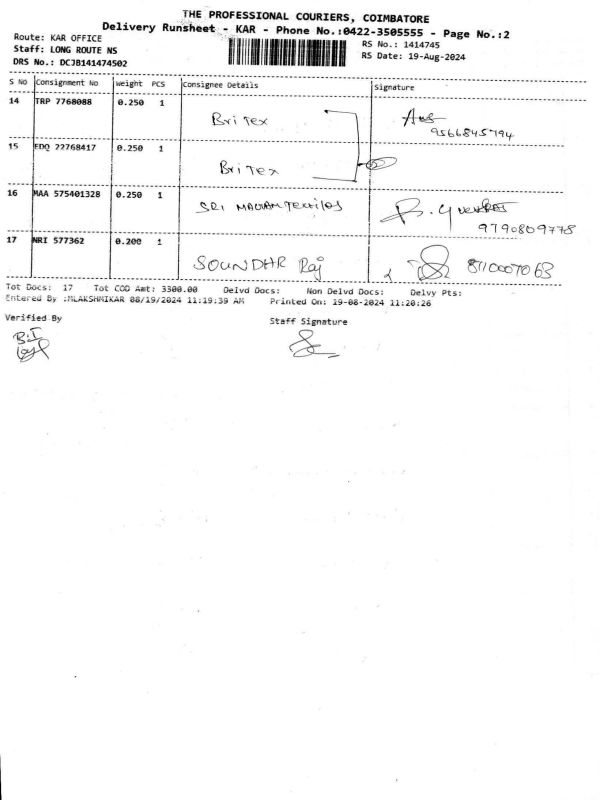 THE PROFESSIONAL COURIERS, COIMBATORE
Delivery Runsheet - KAR - Phone No.:0422-3505555 - Page No.:2
Route: KAR OFFICE
RS No.: 1414745
Staff: LONG ROUTE NS
RS Date: 19-Aug-2024
DRS No.: DCJB141474502
S No Consignment No Weight PCS Consignee Details Signature
14 TRP 7768088 0.250 1 BriTex
9566845794
15 EDQ 22768417 0.250 1 BriTex
16 MAA 575401328 0.250 1 SRI
9790809778
17 NRI 577362 0.200 1 SOUNDHR Raj 8110007063
Tot Docs: 17 Tot COD Amt: 3300.00 Delvd Docs: Non Delvd Docs: Delvy Pts:
Entered By :MLAKSHMIKAR 08/19/2024 11:19:39 AM Printed On: 19-08-2024 11:20:26
Verified By Staff Signature